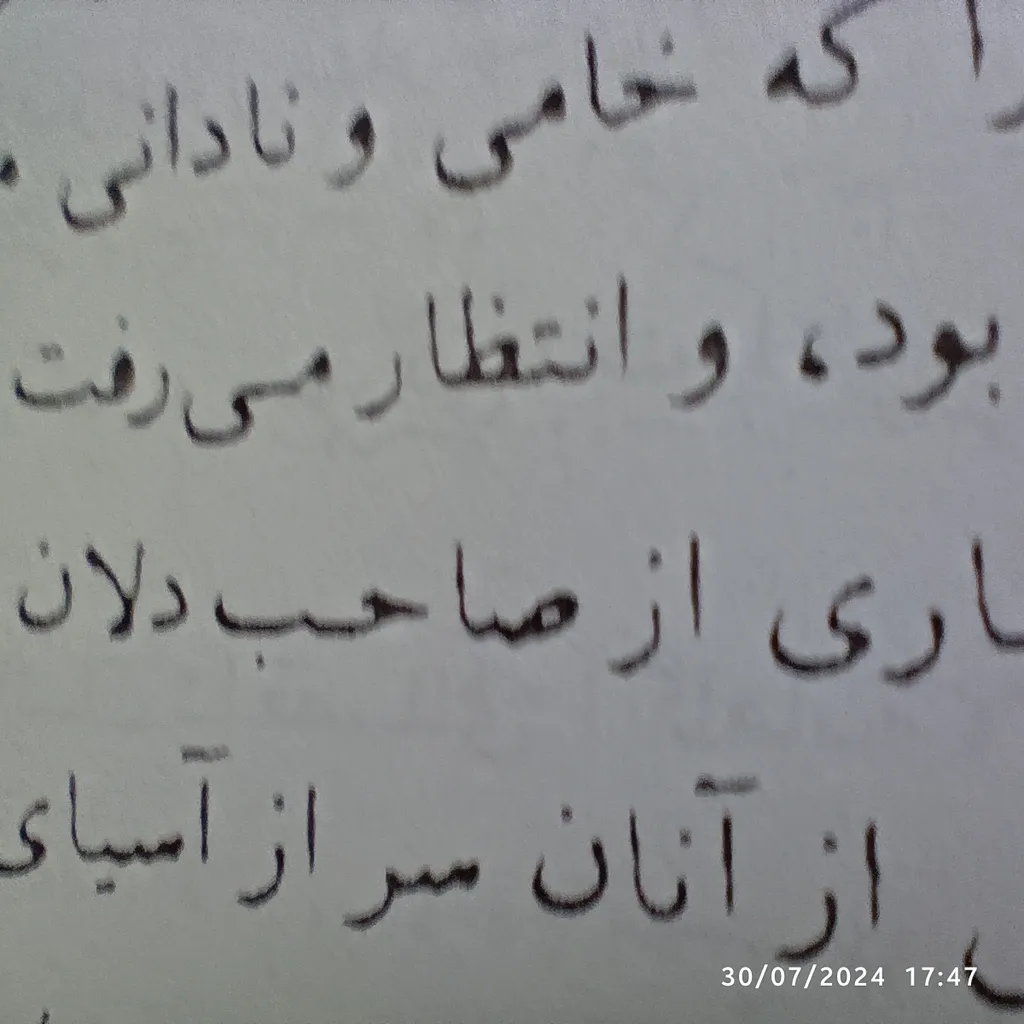 را که خامی و نادانی
بود، و انتظار می‌رفت
ـاری از صاحب‌دلان
از آنان سر از آسیای
30/07/2024 17:47